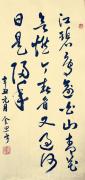 江碧鳥逾白山青花
欲燃今春看又過何
日是歸年
辛丑元月